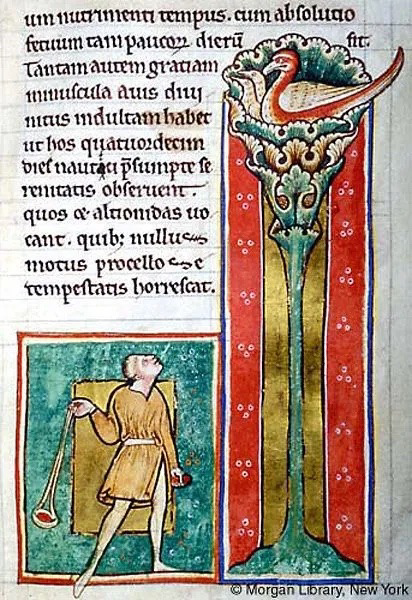 um nutrimenti tempus. cum absolutio
fetuum tam paucoꝝ dierū fit.
Tantam autem gratiam
minuscula auis diui
nitus indultam habet
ut hos quatuordecim
dies nautici p̄sumpte se
renitatis obseruent.
quos ⁊ altionidas uo
cant. quibꝫ nullus
motus procellose
tempestatis horrescat.
© Morgan Library, New York